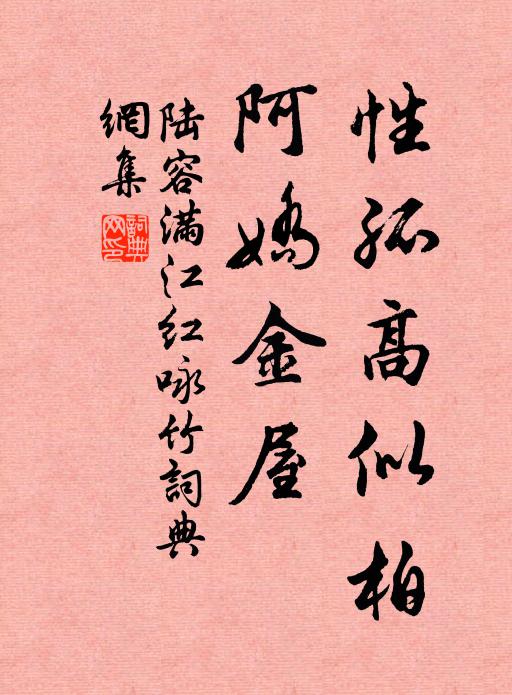 性孤高似柏
阿嬌金屋
陆容满江红咏竹詞典
網集
詞典
网印